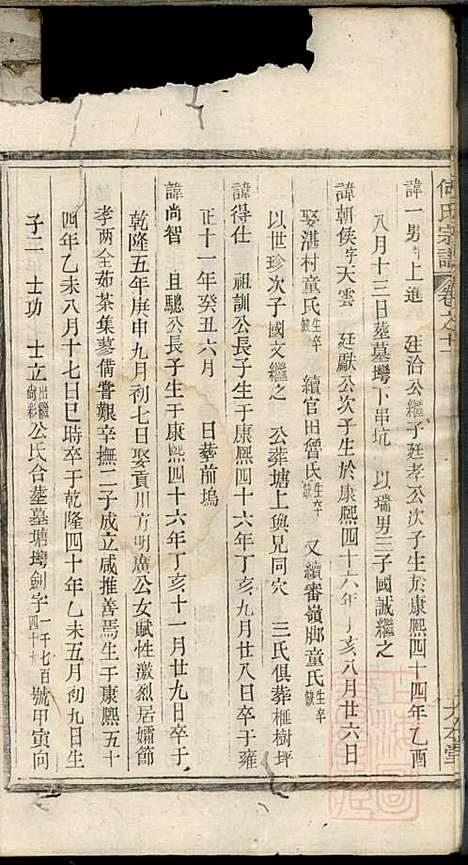 何氏宗譜 卷之十二
諱一男 字上進 廷洽公繼子廷孝公次子生於康熙四十四年乙酉
八月十三日葬墓塆下串坑 以瑞男三子國誠繼之
諱朝俟 字天雲 廷獻公次子生於康熙四十六年丁亥八月廿六日
娶湛村童氏生卒缺 續官田曾氏生卒缺 又續審嶺腳童氏生卒缺
以世珍次子國文繼之 公葬塘上與兄同穴 三氏俱葬榧樹坪
諱得仕 祖訓公長子生于康熙四十六年丁亥九月廿八日卒于雍
正十一年癸丑六月 日葬前塢
諱尚智 且驄公長子生于康熙四十六年丁亥十一月廿九日卒于
乾隆五年庚申九月初七日娶貢川方明廣公女賦性激烈居孀節
孝两全茹荼集蓼備嘗艱辛撫二子成立咸推善焉生于康熙五十
四年乙未八月十七日巳時卒于乾隆四十年乙未五月初九日生
子二 士功 士立出繼尚彩公氏合葬墓塘塆劍字一千七百四十號甲寅向